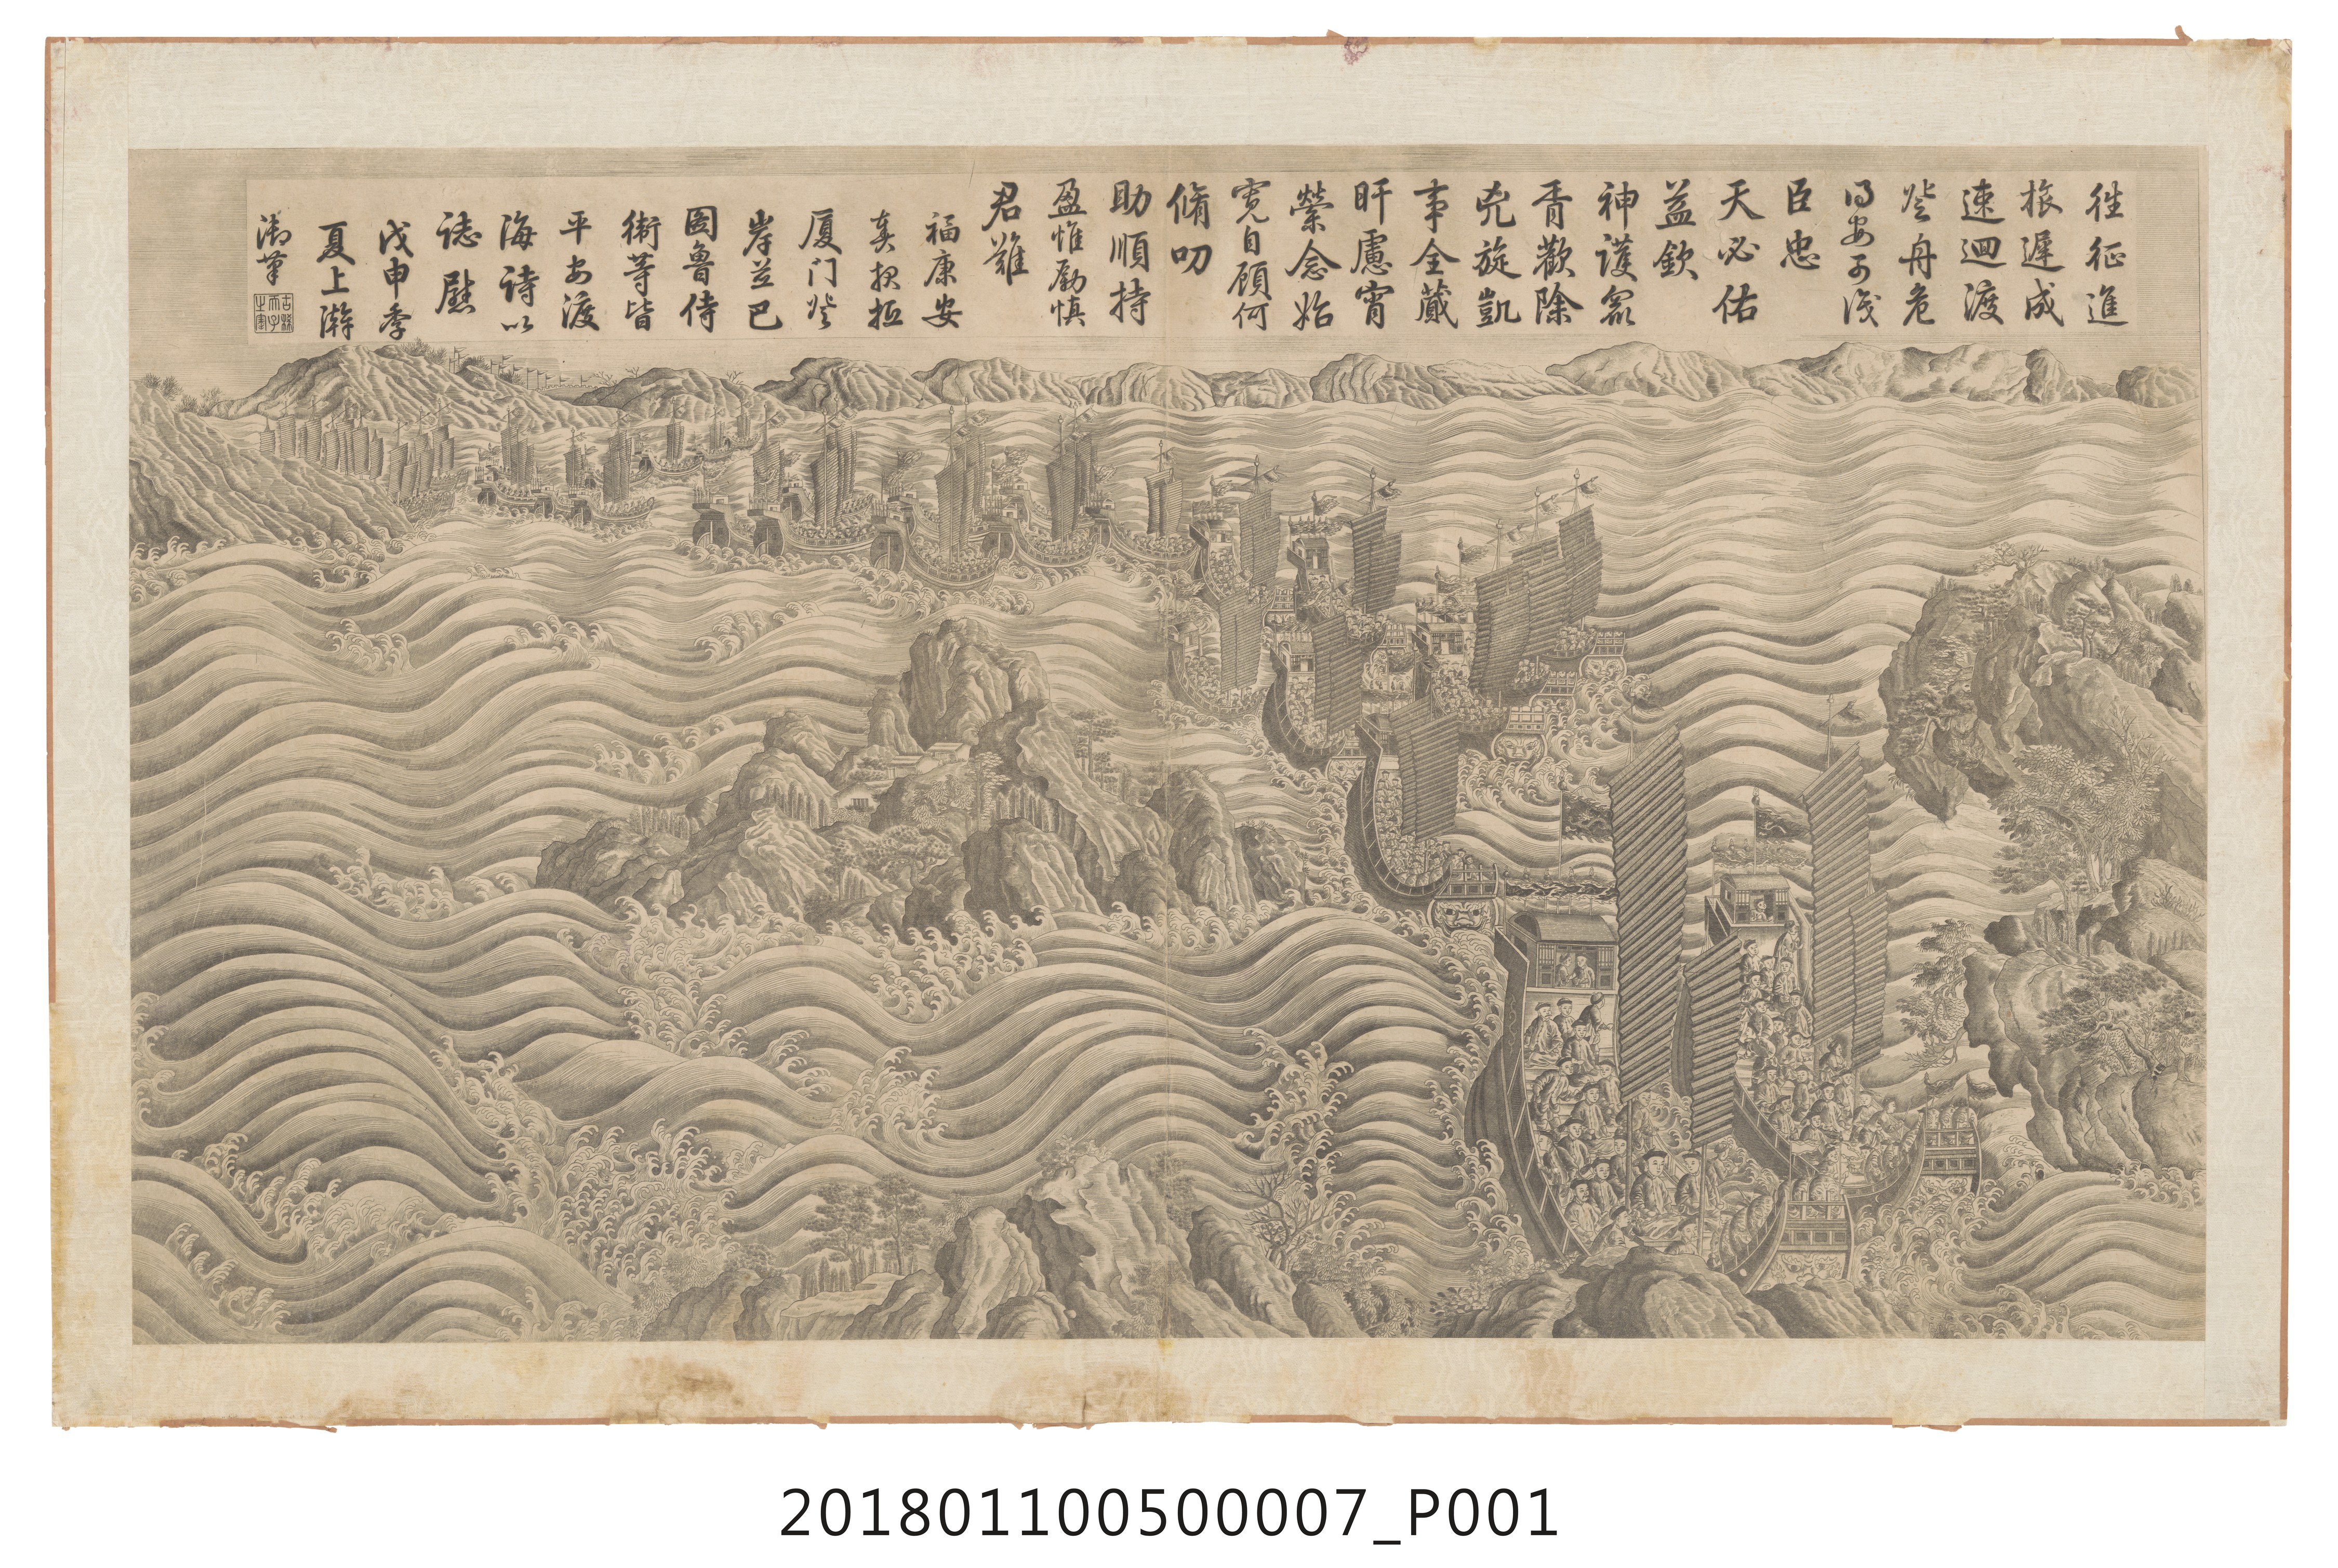 徃征進
旅遲成
速迴渡
登舟危
得安可淺
臣忠
天必佑
益欽
神護眾
胥歡除
兇旋凱
事全蕆
盱慮宵
縈念始
寛自顧何
脩叨
助順持
盈惟勵慎
君難
福康安
奏報扺
厦门登
岸並巴
圖魯侍
衛等皆
平安渡
海詩以
誌慰
戊申季
夏上澣
御筆
古稀
天子
之寶
201801100500007_P001